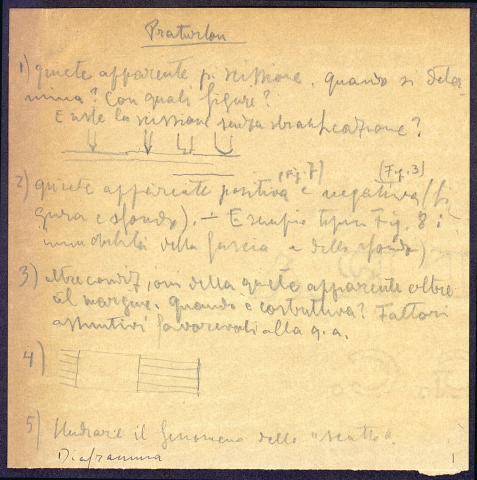 Praturlon
1) quiete apparente p. scissione. Quando si deter-
mina? Con quali figure?
Esiste la scissione senza stratificazione?
(Fig. 7) (Fig. 3)
2) quiete apparente positiva e negativa (fi
gura e sfondo). – Esempio tipico Fig. 8 :
immobilità della fascia e dello sfondo)
3) Altre condizioni della quiete apparente oltre
al margine. Quando è costruttiva? Fattori
assuntivi favorevoli alla q. a.
4)
5) Studiare il fenomeno dello "scatto".
Diaframma
1